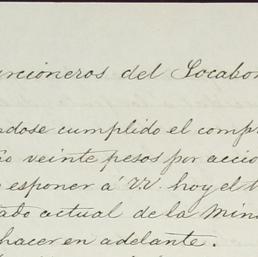 rcioneros del Socabon
dose cumplido el comp
veinte pesos por accio
esponer á VV. hoy el
tado actual de la Min
hacer en adelante.